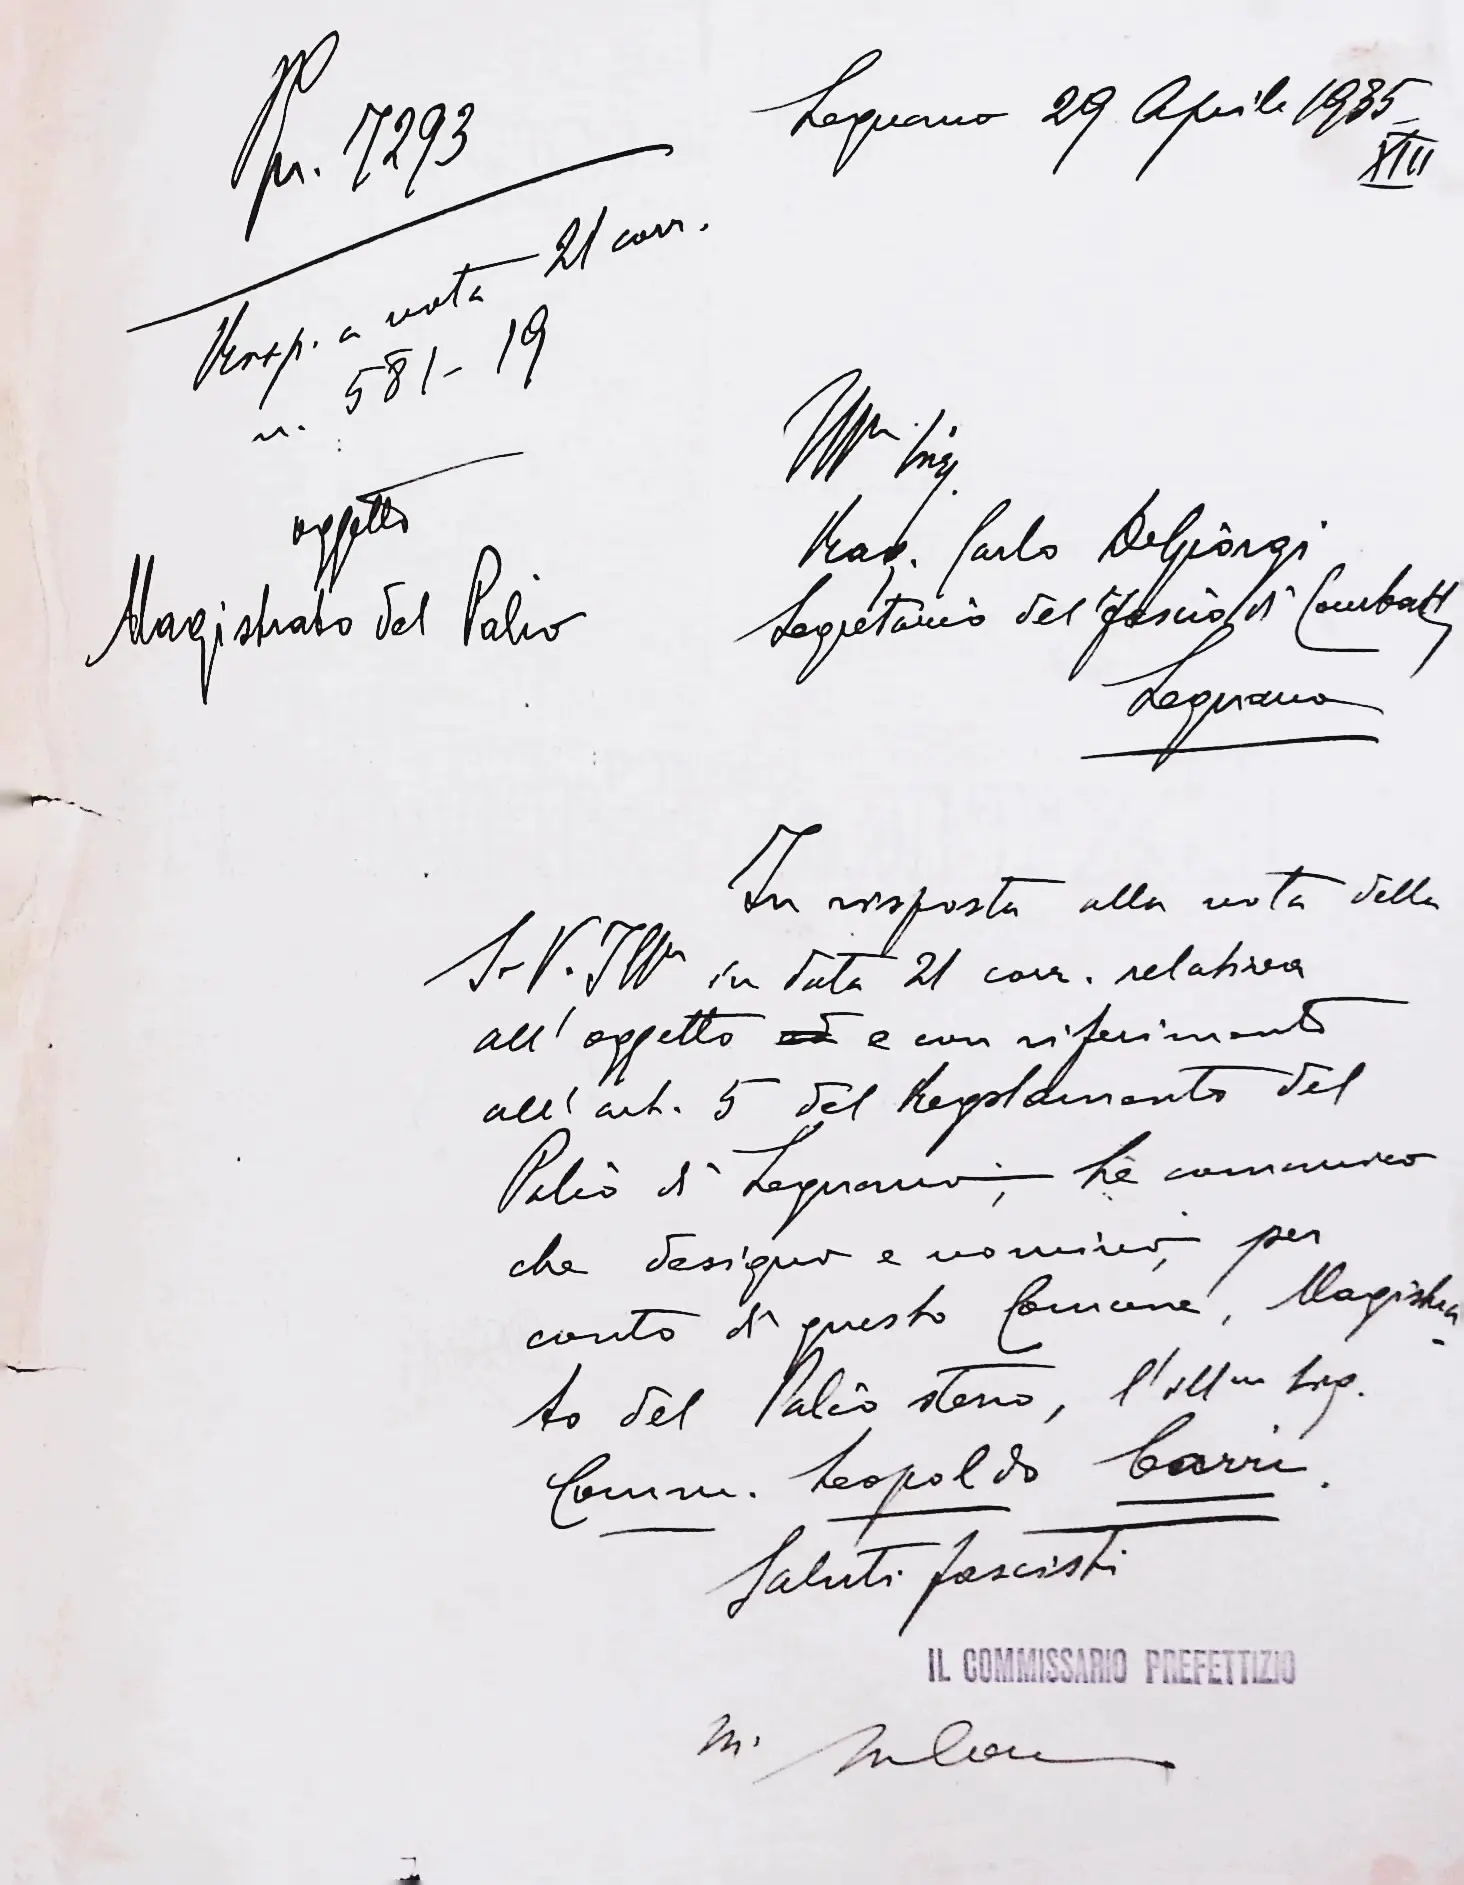 pr. 7293
Legnano 29 Aprile 1935
XIII
Risp. a nota 21 corr.
n. 581-19
oggetto
Magistrato del Palio
Ill.mo Sig.
Rag. Carlo DeGiorgi
Segretario del Fascio di Combatt.
Legnano
In risposta alla nota della
S. V. Ill.ma in data 21 corr. relativa
all'oggetto e con riferimento
all'art. 5 del Regolamento del
Palio di Legnano, Le comunico
che designo e nomino, per
conto di questo Comune, Magistra-
to del Palio stesso, l'ill.mo Sig.
Comm. Leopoldo Carri.
Saluti fascisti
IL COMMISSARIO PREFETTIZIO